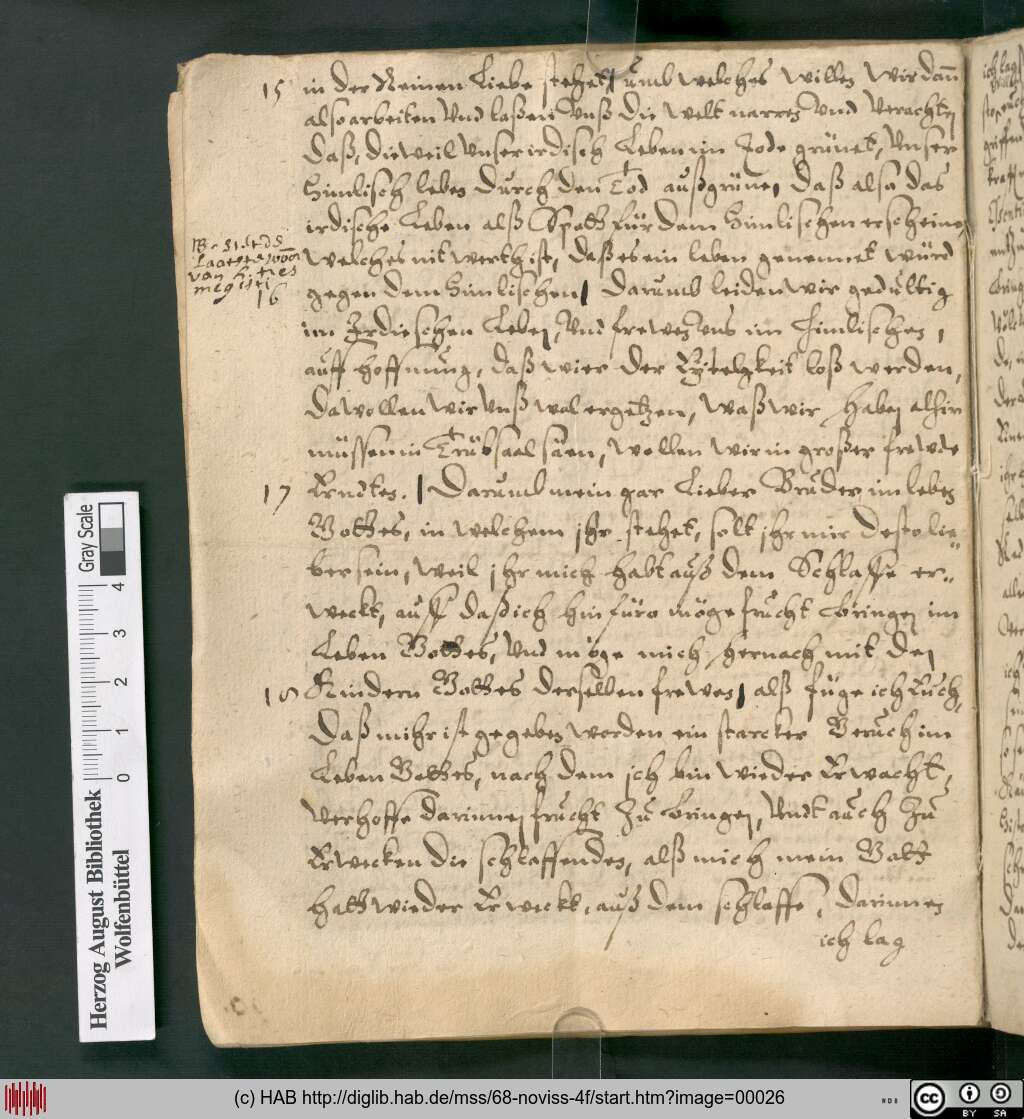 15 in der Reinen Liebe stehet, umb welches willen wir dann
also arbeiten Vnd laßen Vnß die welt narren Vnd Verachten
daß, dieweil Vnser irdisch Leben im Tode grünet, Vnser
Himlisch leben durch den Tod außgrüne, daß also das
irdische Leben alß Spott für dem Himlischen erscheine,
welches nit werth ist, daß es ein leben genennet würd
16 gegen dem Himlischen / Darumb leiden wir gedultig
im Irdieschen Leben, Vnd frewen Vns im Himlischen,
auff hoffnung, daß wier der Eytelgkeit loß werden,
da wollen wir Vnß wol ergetzen, waß wir haben alhir
müssen in Trübsaal säen, wollen wir in großer frewde
17 Erndten. / Darumb mein gar Lieber Bruder im leben
Gottes, in welchem jhr stehet, solt jhr mir desto lie=
ber sein, weil jhr mich habt auß dem Schlaffe er=
weckt, auff daß ich hinfüro möge frucht bringen im
Leben Gottes, Vnd möge mich hernach mit den
18 Kindern Gottes derselben frewen / alß füge ich Euch,
daß mihr ist gegeben worden ein starcker Geruch im
Leben Gottes, nach dem ich bin wieder Erwacht,
Verhoffe darinnen frucht Zu bringen, Vndt auch Zu
Erwecken die schlaffenden, alß mich mein Gott
hatt wieder Erweckt, auß dem schlaffe, darinnen
ich lag
Gray Scale
0 1 2 3 4
Herzog August Bibliothek
Wolfenbüttel
(c) HAB http://diglib.hab.de/mss/68-noviss-4f/start.htm?image=00026
cc BY SA